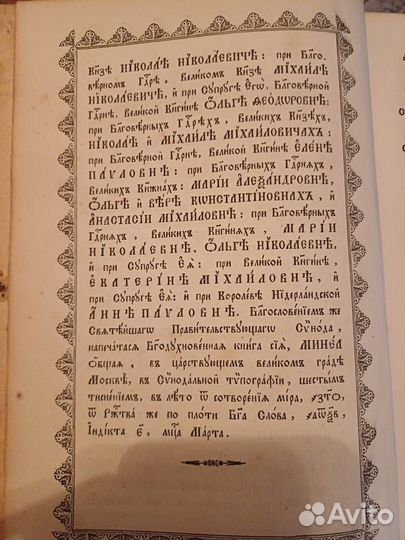 Кн҃зѣ НІКОЛАѢ НІКОЛАЕВИЧѢ: при Бл҃го-
вѣрномъ Гдⷭ҇рѣ, Великомъ Кн҃зѣ МІХАИЛѢ
НІКОЛАЕВИЧѢ, и҆ при Сꙋпрꙋгѣ Є҆гѡ̀, Бл҃говѣрной
Гдⷭ҇рнѣ, Великой Кн҃гинѣ Ѻ҆ЛЬГѢ ФЕОДѠРОВНѢ:
при Бл҃говѣрныхъ Гдⷭ҇рѣхъ, Великихъ Кн҃зѣхъ,
НІКОЛАѢ и҆ МІХАИЛѢ МІХАИЛОВИЧАХЪ: при
Бл҃говѣрной Гдⷭ҇рнѣ, Великой Кн҃гинѣ Є҆ЛЕНѢ
ПАѴЛОВНѢ: при Бл҃говѣрныхъ Гдⷭ҇рняхъ,
Великихъ Кн҃жнахъ: МАРІИ А҆ЛЕѮАНДРОВНѢ,
Ѻ҆ЛЬГѢ и҆ ВѢРѢ КѠНСТАНТІНОВНАХЪ, и҆
А҆НАСТАСІИ МІХАИЛОВНѢ: при Бл҃говѣрныхъ
Гдⷭ҇рняхъ, Великихъ Кн҃гиняхъ, МАРІИ
НІКОЛАЕВНѢ, Ѻ҆ЛЬГѢ НІКОЛАЕВНѢ,
и҆ при Сꙋпрꙋгѣ Є҆ѧ̀: при Великой Кн҃гинѣ,
Є҆КАТЕРІНѢ МІХАИЛОВНѢ, и҆
при Сꙋпрꙋгѣ Є҆ѧ̀: и҆ при Королевѣ Нідерландской
А҆ННѢ ПАѴЛОВНѢ. Благословенїемъ же
Свѧтѣйшагѡ Правительствꙋющагѡ Сѷно́да,
напечатасѧ Бг҃одꙋхновеннаѧ книга сїѧ̀, МИНЕА
Ѻ҆бщаѧ, въ царствꙋющемъ великомъ градѣ
Москвѣ, въ Сѷнодальной тѷпографїи, шестымъ
тисненїемъ, въ лѣто ѿ сотворенїѧ мїра, ҂зт҃о,
ѿ Рж҃тва же по плоти Бг҃а Слова, ҂аѡ҃ѯв,
І҆ндїкта є҃, мц҃а Марта.
Avito